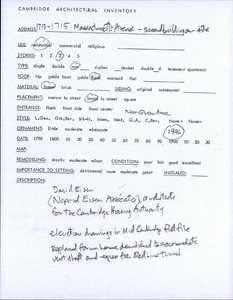 CAMBRIDGE ARCHITECTURAL INVENTORY
ADDRESS: 1713-1715 Massachusetts Avenue - second building on site
USE: residential commercial religious
STORIES: 1 2 3 4 5
TYPE: single double row duplex decker double d tenement apartment
ROOF: hip gable front gable flank mansard flat
MATERIAL: frame brick SIDING: original subsequent
PLACEMENT: narrow to street broad to street square
New Queen Anne
ORNAMENT: little moderate elaborate
DATE: 1790 1800 10 20 30 40 50 60 70 80 90 1900 10 20 30
1986
MAP:
REMODELING: drastic moderate minor CONDITION: poor fair good excellent
IMPORTANCE TO SETTING: detrimental none moderate great INITIALED:
DESCRIPTION:
David Eisen
(Eisen Associates) architects
for the Cambridge Housing Authority
elevation drawings in Mid Cambridge field file
Replaced frame house demolished to accommodate
vent shaft and egress for Red Line tunnel